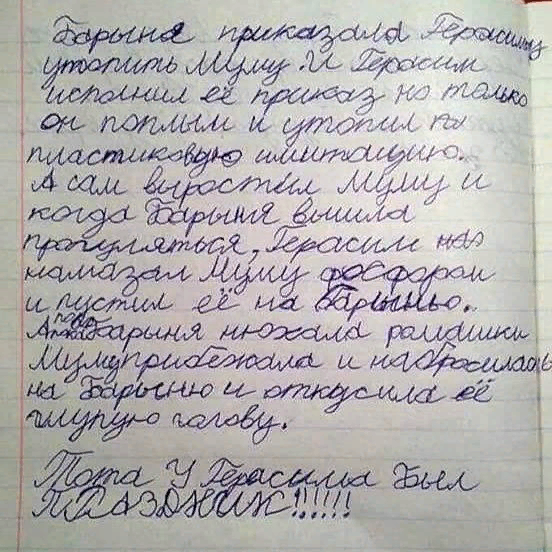 Барыня приказала Герасиму
утопить Муму. И Герасим
исполнил её приказ но только
он поплым и утопил
пластиковую имитацию.
А сам выростил Муму и
когда Барыня вышла
прогуляться, Герасим
намазал Муму фосфаром
и пустил её на Барыню.
пока Барыня нюхала ромашки
Муму прибежала и набросилась
на Барыню и откусила её
глупую голову.
Тота У Герасима был
ПРАЗДНИК!!!!!!